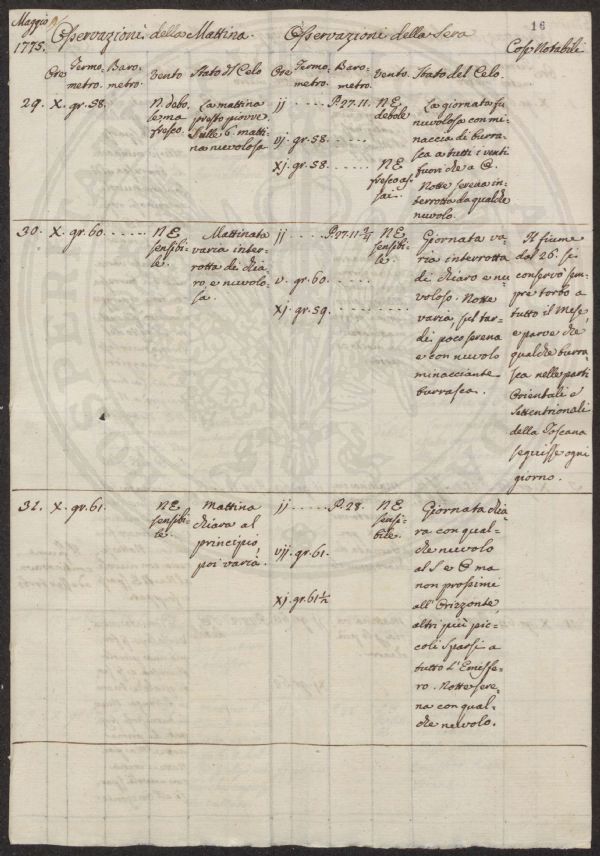 Maggio
1775.
16
Osservazioni della Mattina
Osservazioni della Sera
Cose Notabili
Ore Termo=metro. Baro=metro. Vento Stato del Celo
Ore Termo=metro. Baro=metro. Vento. Stato del Celo.
29. X. gr. 58.
N. debo=
le ma
fresco.
La mattina
presto piovve.
Sulle 6. matti=
na nuvolosa
ij ..... P. 27. 11.
NE
debole
vj. gr. 58 .....
xj. gr. 58 .....
NE
fresco as=
sai.
La giornata fu
nuvolosa con mi=
naccia di burra=
sca a tutti i venti
fuori che a O.
Notte serena in=
terrotta da qualche
nuvolo.
30. X. gr. 60 ......
NE
sensibi=
le.
Mattinata
varia inter=
rotta di chia=
ro, e nuvolo=
sa.
ij ..... P. 27. 11.
NE
sensibi=
le.
v. gr. 60 .....
xj. gr. 59 .....
Giornata va=
ria interrotta
di chiaro e nu=
voloso. Notte
varia, sul tar=
di poco serena
e con nuvolo
minacciante
burrasca.
Il fiume
dal 26. si
conservò sem=
pre torbo a
tutto il Mese,
e parve che
qualche burra=
sca nelle parti
Orientali e
Settentrionali
della Toscana
seguisse ogni
giorno.
31. X. gr. 61.
NE
sensibi=
le.
Mattina
chiara al
principio,
poi varia.
ij ..... P. 28.
NE
sensi=
bile.
vij. gr. 61.
xj. gr. 61 1/2
Giornata chia=
ra con qual=
che nuvolo
al S e O ma
non prossimi
all'Orizzonte,
altri più pic=
coli sparsi a
tutto l'Emisfe=
ro. Notte sere=
na con qual=
che nuvolo.